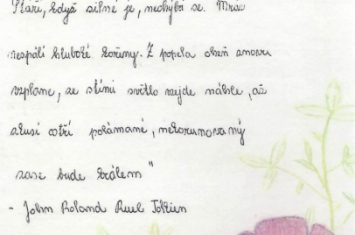 Stáří, když silné je, neohýbá se. Mráz
nespálí hluboké kořeny. Z popela oheň znovu
vzplane, ze stínů světlo vzejde náhle, až
zkusí ostří polámané, nekorunovaný
zase bude králem"
- John Roland Ruel Tolkien